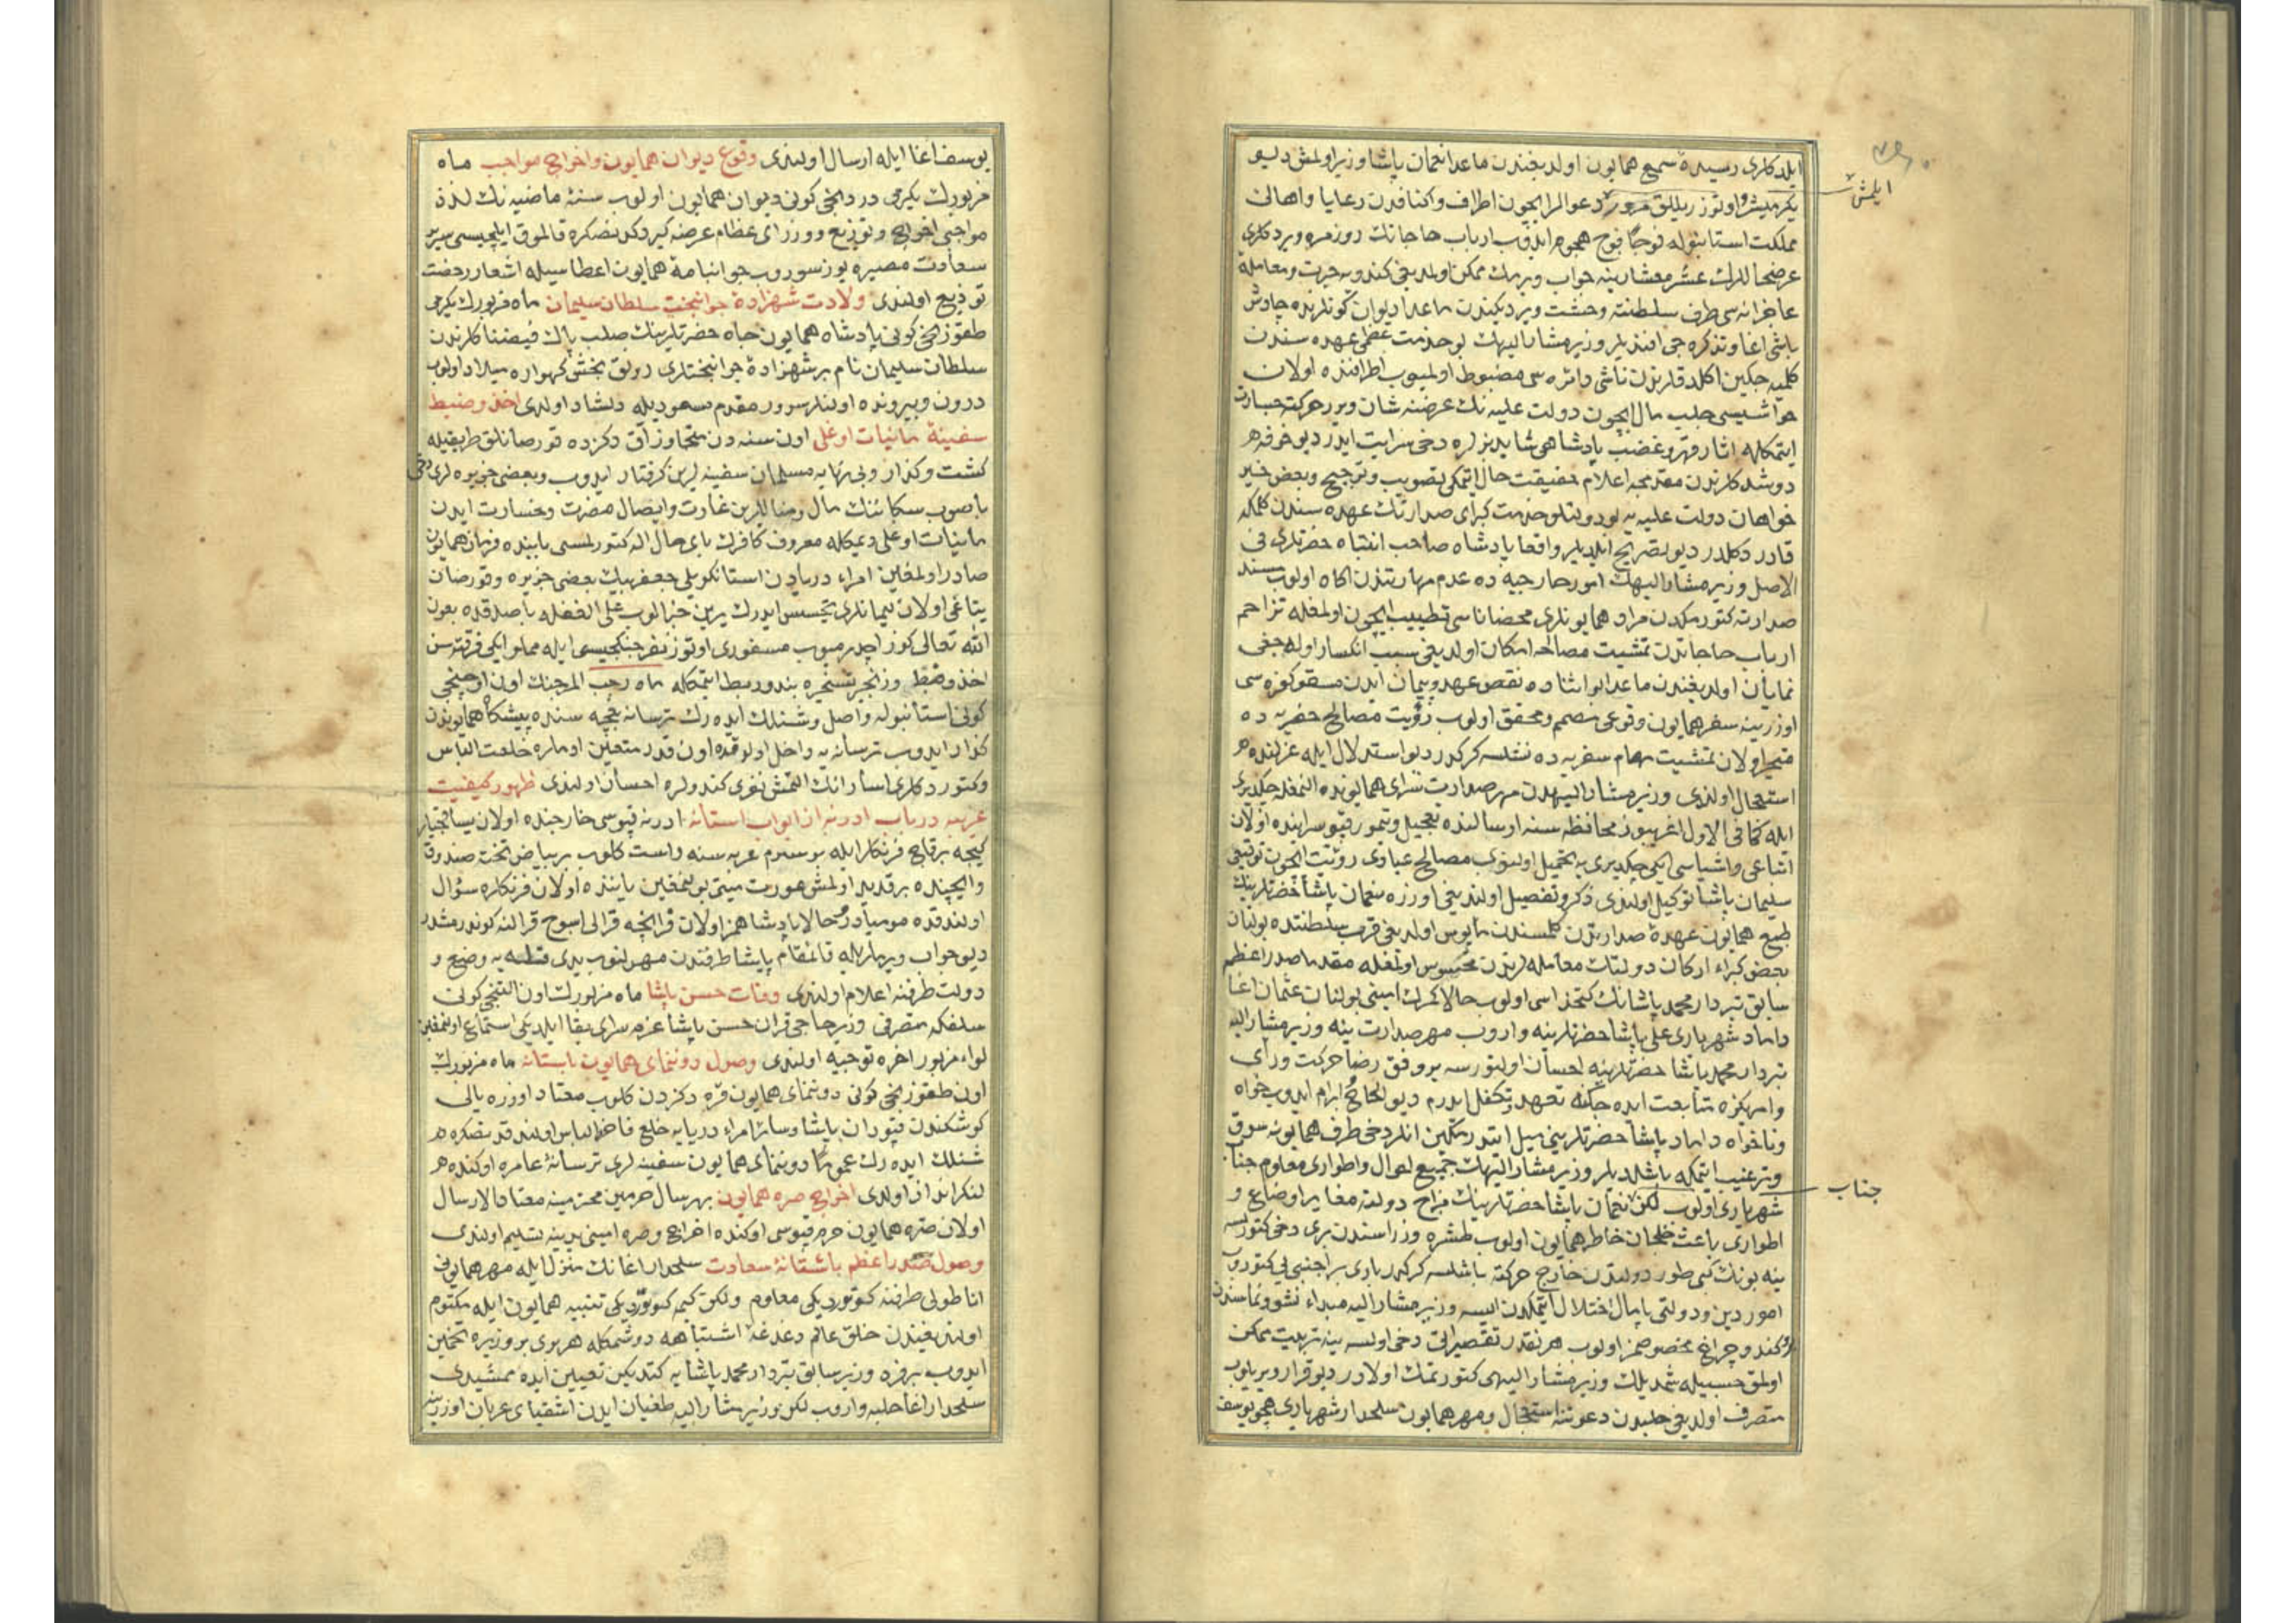 ایلدکلری رسیدهٔ سمع همایون اولدیغندن ماعدا نعمان پاشا وزیر اولمش دیو
یکرمیشر اوتوز ییللق مرور دعوالر ایچون اطراف واکنافدن رعایا واهالی
ایلمش
مملکت استانبوله فوجا فوج هجوم ایدوب ارباب حاجاتك روزمره ویردکلری
عرضحاللرك عشر معشارینه جواب ویرمك ممکن اولمدیغی کندویه حیرت ومعاملهٔ
عاجزانه سی طرف سلطنته وحشت ویردیکندن ماعدا دیوان کونلرنده چاوش
باشی اغا وتذکره جی افندیلر وزیر مشار الیهك بو خدمت عظمی عهده سندن
کلمیه جکین اکلدقلرندن ناشی دائره سی مضبوط اولمیوب اطرافنده اولان
حواشیسی جلب مال ایچون دولت علیه نك عرضنه شان ویرر حرکته جسارت
ایتمکله اثار قهر وغضب پادشاهی شاید بزلره دخی سرایت ایدر دیو خوفه
دوشدکلرندن مقدمجه اعلام حقیقت حال ایتمکی تصویب وترجیح وبعض خیر
خواهان دولت علیه یه بو دولتلو خدمت کبرای صدارتك عهده سندن کلمکه
قادر دکلدر دیو تصریح ایلدیلر واقعا پادشاه صاحب انتباه حضرتلری فی
الاصل وزیر مشار الیهك امور خارجیه ده عدم مهارتندن اکاه اولوب مسند
صدارته کتورمکدن مراد همایونلری محضا ناسی تطییب ایچون اولمغله تزاحم
ارباب حاجاتدن تمشیت مصالحه امکان اولمدیغی سبب انکسار اوله جغی
نمایان اولدیغندن ماعدا بو اثناده نقض عهد وپیمان ایدن مسقو کفره سی
اوزرینه سفر همایون وقوعی مصمم ومحقق اولوب رؤیت مصالح حضریه ده
متحیر اولان تمشیت مهام سفریه ده نیلسه کرکدر دیو استدلال ایله عزلنده
استعجال اولندی وزیر مشار الیهدن مهر صدارت سرای همایونده النمغله چکدیری
ایله کما فی الاول اغریبوز محافظه سنه ارسالنده تعجیل وتیمور قپو سراینده اولان
اتباعی واشیاسی ایکی چکدیری یه تحمیل اولنوب مصالح عبادی رؤیت ایچون توقیعی
سلیمان پاشا توکیل اولندی ذکر وتفصیل اولندیغی اوزره نعمان پاشا حضرتلرینك
طبع همایون عهدهٔ صدارتدن کلمسندن مأیوس اولدیغی قرب سلطنتده بولنان
بعض کبراء ارکان دولتك معامله لرندن محسوس اولمغله مقدما صدر اعظم
سابق تبردار محمد پاشانك کتخداسی اولوب حالا کمرك امینی بولنان عثمان اغا
داماد شهریاری علی پاشا حضرتلرینه واروب مهر صدارت ینه وزیر مشار الیه
تبردار محمد پاشا حضرتلرینه احسان اولنورسه بر وفق رضا حرکت ورأی
وامریکزه متابعت ایده جکنه تعهد وتکفل ایدرم دیو الحاح وابرام ایدوب خواه
وناخواه داماد پاشا حضرتلرینی میل ایتدرمکین انلر دخی طرف همایونه سوق
وترغیب ایتمکه باشلدیلر وزیر مشار الیهك جمیع احوال واطواری معلوم جناب
جناب
شهریاری اولوب لکن نعمان پاشا حضرتلرینك مزاج دولته مغایر اوضاع و
اطواری باعث خلجان خاطر همایون اولوب طشره وزراسندن بری دخی کتورلسه
ینه بونك کبی طور دولتدن خارج حرکته باشلسه کرکدر باری بر اجنبی یی کتوروب
امور دین ودولتی پامال اختلال ایتمکدن ایسه وزیر مشار الیه مبداء نشو ونماسندن
کندو چراغ مخصوصمز اولوب هر نقدر تقصیراتی دخی اولسه ینه تربیت ممکن
اولمق حسبیله شمدیلك وزیر مشار الیهی کتورتمك اولادر دیو قرار ویریلوب
متصرف اولدیغی حلبدن دعوتنه استعجال ومهر همایون سلحدار شهریاری همچو یوسف
یوسف اغا ایله ارسال اولندی وقوع دیوان همایون واخراج مواجب ماه
مزبورك یکرمی دردنجی کونی دیوان همایون اولوب سنهٔ ماضیه نك لذذ
مواجبی اخراج وتوزیع ووزرای عظام عرضه کیردکدنصکره قالموق ایلچیسی سریر
سعادت مصیره یوز سوروب جوابنامهٔ همایون اعطاسیله اشعار رخصت
تودیع اولندی ولادت شهزادهٔ جوانبخت سلطان سلیمان ماه مزبورك یکرمی
طقوزنجی کونی پادشاه همایون جاه حضرتلرینك صلب پاك فیضناکلرندن
سلطان سلیمان نام بر شهزادهٔ جوانبختلری رونق بخش کهوارهٔ میلاد اولوب
درون وبیرونده اولنلر سرور مقدم مسعودیله دلشاد اولدی اخذ وضبط
سفینهٔ مانیات اوغلی اون سنه دن متجاوز آق دکزده قورصانلق طریقیله
کشت وکذار وبی نهایه مسلمان سفینه لرین کرفتار ایدوب وبعضی جزیره لری دخی
باصوب سکاننك مال ومنالرین غارت وایصال مضرت وخسارت ایدن
مانیات اوغلی دیمکله معروف کافرك بای حال اله کتورلمسی بابنده فرمان همایون
صادر اولمغین امراء دریادن استانکویلی جعفر بیك بعضی جزیره وقورصان
یتاغی اولان لیمانلری تجسس ایدرك یرین خبر الوب علی الغفله باصدقده بعون
الله تعالی کوز اچدرمیوب مسفوری اوتوز نفر جنکجیسی ایله مملو ایکی فرقته سن
اخذ وضبط وزنجیر تسخیره بند وربط ایتمکله ماه رجب المرجبك اون اوچنجی
کونی استانبوله واصل وشنلك ایده رك ترسانه بغچه سنده پیشکاه همایوندن
کذار ایدوب ترسانه یه داخل اولدقده اون قدر متعین اومراره خلعت الباس
وکتوردکلری اسارانك التمش نفری کندولره احسان اولندی ظهور کیفیت
غریبه در باب ادرنه از ابواب استانه ادرنه قپوسی خارجنده اولان
کیجه برقاچ فرنکلر ایله بوستوم عربه سنه راست کلوب بر بیاض تخته صندوق
وایچنده بر قدید اولمش عورت میتی بولنمغین یاننده اولان فرنکلره سؤال
اولندقده مومیادر وحالا پادشاهمز اولان قرانچه قرالی اسوج قرالنه کوندرمشدر
دیو جواب ویرمالریله قائمقام پاشا طرفندن مهرلنوب یدی قله یه وضع و
دولت طرفنه اعلام اولندی وفات حسن پاشا ماه مزبورك اون التنجی کونی
سلفکه متصرفی وزیر حاجی قران حسن پاشا عزم سرای بقا ایلدیکی استماع اولنمغین
لواء مزبور اخره توجیه اولندی وصول دوننمای همایون باستانه ماه مزبورك
اون طقوزنجی کونی دوننمای همایون قره دکزدن کلوب معتاد اوزره یالی
کوشکندن قپودان پاشا وسائر امراء دریایه خلع فاخره الباس اولندقدنصکره
شنلك ایده رك عموما دوننمای همایون سفینه لری ترسانهٔ عامره اوکنده
لنکر انداز اولدی اخراج صره همایون بهر سال حرمین محترمینه معتاد الارسال
اولان صرهٔ همایون حرم قپوسی اوکنده اخراج وصره امینی یدینه تسلیم اولندی
وصول صدر اعظم باستانهٔ سعادت سلحدار اغانك منزل ایله مهر همایونی
اناطولی طرفنه کوتوردیکی معلوم ولکن کیمه کوتوردیکی تنبیه همایون ایله مکتوم
اولندیغندن خلق عالم دغدغهٔ اشتباهه دوشمکله هر بری بر وزیره تخمین
ایدوب بر فرقه وزیر سابق تبردار محمد پاشایه کتدیکین تعیین ایده ممشیدی
سلحدار اغا حلبه واروب لکن وزیر مشار الیه طغیان ایدن اشقیای عربان اوزرینه